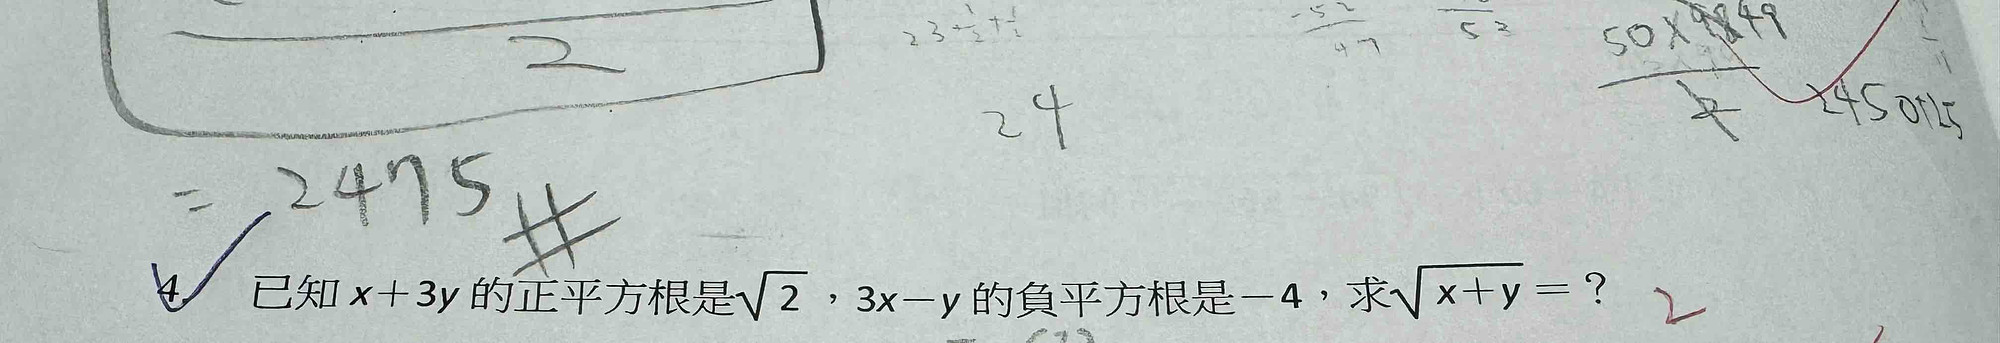 2
23+½+½
-52
47
53
50×9849
2
2450+25
24
= 2475 #
4. 已知 x+3y 的正平方根是√2，3x−y 的負平方根是−4，求√x+y = ? 2